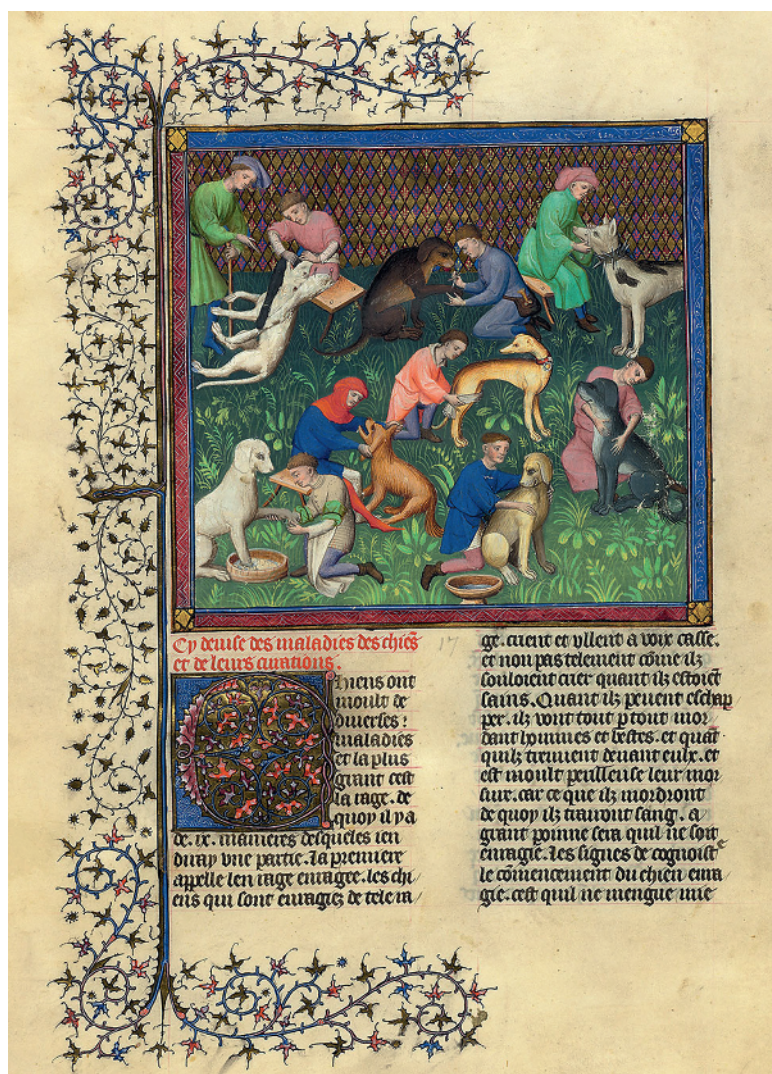 Cy deuise des maladies des chiẽs
et de leurs curations.
Chiens ont
moult de
diuerses
maladies
et la plus
grant cest
la rage. de
quoy il y a
de .ix. manieres desqueles ien
diray vne partie. La premiere
appelle len rage enragee. les chi
ens qui sont enragiez de tele ra
17
ge. crient et vllent a voix casse.
et non pas telement cõme ilz
souloient crier quant ilz estoiẽt
sains. Quant ilz peuent eschap
per. ilz vont tout ꝑtout mor
dant hommes et bestes. et quãt
quilz treuuent deuant eulx. et
est moult perilleuse leur mor
sure. car ce que ilz mordront
de quoy ilz trairont sang. a
grant poinne sera quil ne soit
enragie. Les signes de cognoistͤ
le cõmencement du chien enra
gie. cest quil ne mengue mie